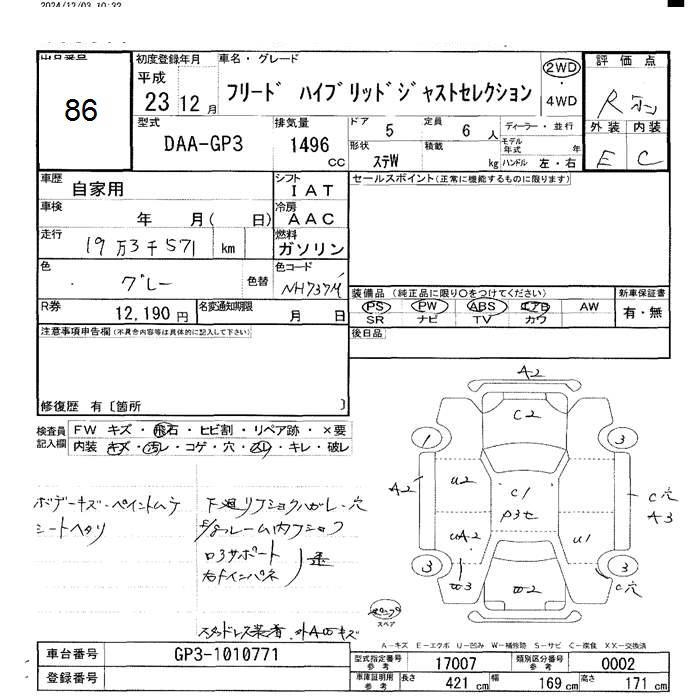 2024/12/03 10:32
出品番号
86
初度登録年月
平成
23 12 月
車名・グレード
フリード ハイブリッドジャストセレクション
2WD
・
4WD
評価点
R
外装 内装
E C
型式
DAA-GP3
排気量
1496
CC
ドア 5
定員 6 人
ディーラー・並行
モデル年式 年
形状 ステW
積載 kg
ハンドル 左・右
車歴 自家用
シフト IAT
セールスポイント(正常に機能するものに限ります)
車検 年 月( 日)
冷房 AAC
走行 19万3千571 km
燃料 ガソリン
色 グレー 色替
色コード NH737M
装備品 (純正品に限り○をつけてください)
新車保証書
PS PW ABS エアB AW
有・無
SR ナビ TV カワ
R券 12,190 円
名変通知期限 月 日
後日品
注意事項申告欄(不具合内容等は具体的に記入して下さい)
修復歴 有〔箇所 〕
検査員記入欄
FW キズ・飛石・ヒビ割・リペア跡・×要
内装・キズ・汚レ・コゲ・穴・スレ・キレ・破レ
ボデーキズ・ペイントムラ
シートヘタリ
下廻リフショクハガレ・穴
E/gルーム内フショク
ロ3サポート
右ドインパネ
スタッドレス装着・外A凹キズ
A2
C2
1
3
A2
U2
C1
C穴
A3
UA2
U1
3
3
C穴
スペア
A-キズ E-エクボ U-凹み W-補修跡 S-サビ C-腐食 XX-交換済
車台番号 GP3-1010771
登録番号
型式指定番号 参考 17007
類別区分番号 参考 0002
車庫証明用 参考
長さ 421 cm
幅 169 cm
高さ 171 cm